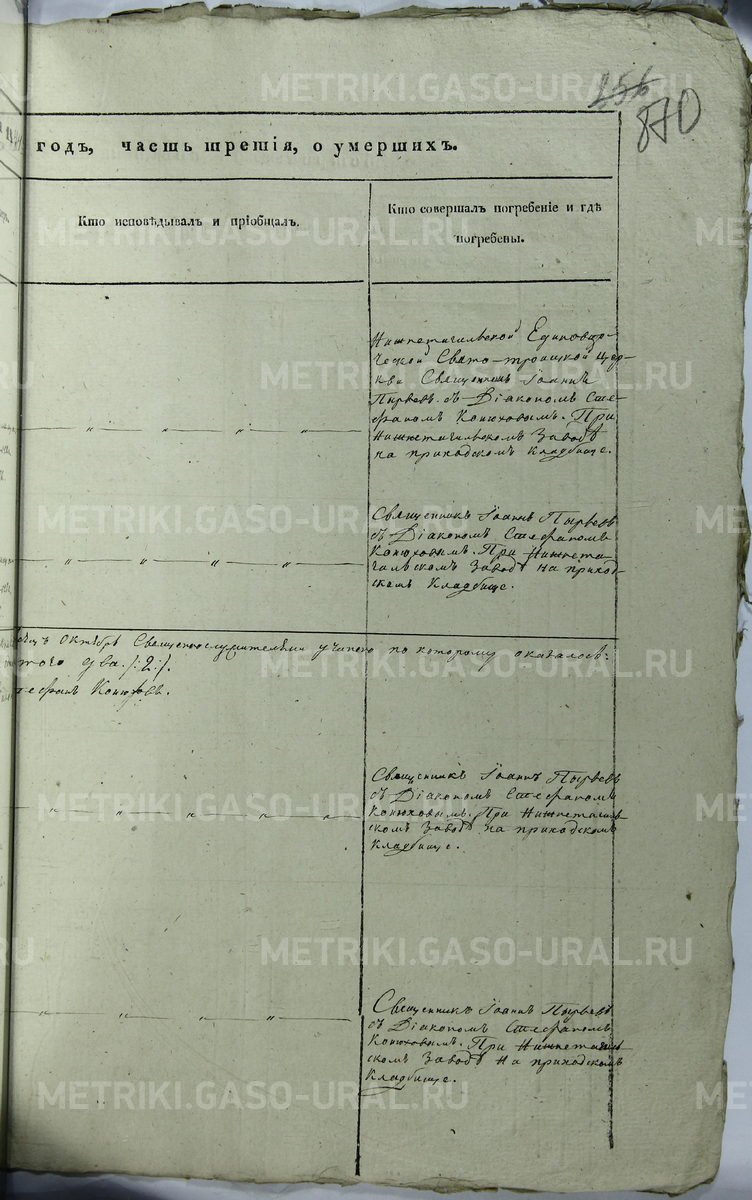 METRIKI.GASO-URAL.RU
256
870
годъ, часть третія, о умершихъ.
Кто исповѣдывалъ и пріобщалъ.
Кто совершалъ погребеніе и гдѣ
погребены.
Нижнетагильской Единовѣр-
ческой Свято-троицкой цер-
кви Священникъ Іоаннъ
Пырьевъ съ Діакономъ Сте-
фаномъ Конюховымъ. При
Нижнетагильскомъ Заводѣ
на приходскомъ Кладбище.
Священникъ Іоаннъ Пырьевъ
съ Діакономъ Стефаномъ
Конюховымъ. При Нижнета-
гильскомъ Заводѣ на приход-
скомъ Кладбище.
Октябрь Священнослужителями учинено по которому оказалось:
того два /:2:/.
Стефанъ Конюховъ.
Священникъ Іоаннъ Пырьевъ
съ Діакономъ Стефаномъ
Конюховымъ. При Нижнетагиль-
скомъ Заводѣ на приходскомъ
Кладбище.
Священникъ Іоаннъ Пырьевъ
съ Діакономъ Стефаномъ
Конюховымъ. При Нижнетагиль-
скомъ Заводѣ на приходскомъ
Кладбище.